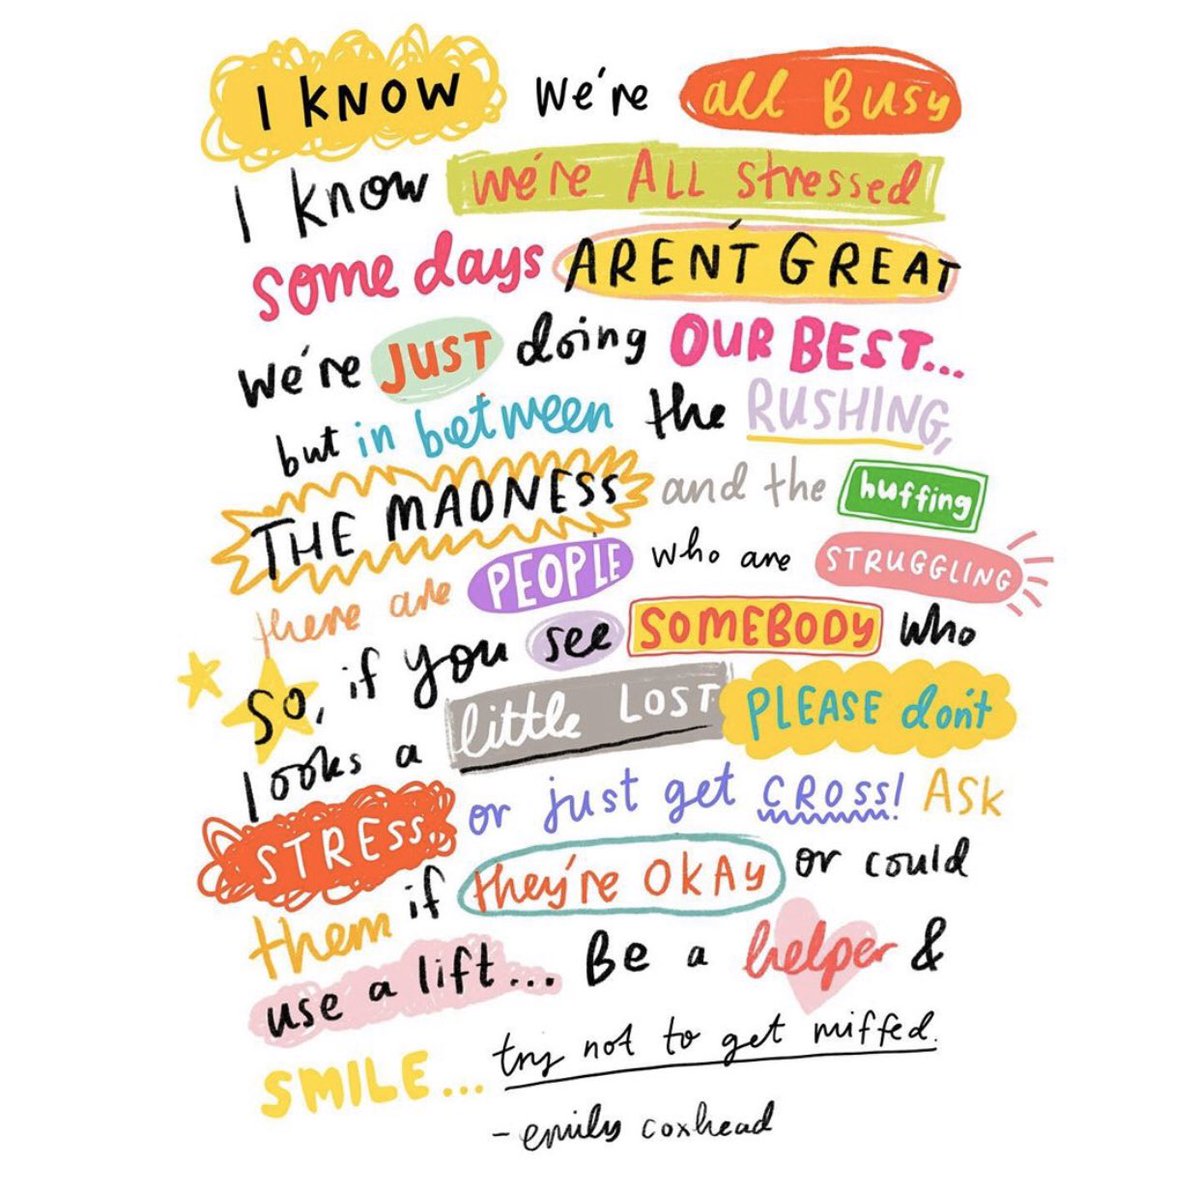 I KNOW we're all Busy
I know we're ALL stressed
some days AREN'T GREAT
we're JUST doing OUR BEST...
but in between the RUSHING,
THE MADNESS and the huffing
there are PEOPLE who are STRUGGLING
So, if you see SOMEBODY who
looks a little LOST PLEASE don't
STRESS or just get CROSS! ASK
them if they're OKAY or could
use a lift... Be a helper &
SMILE... try not to get miffed.
- emily coxhead